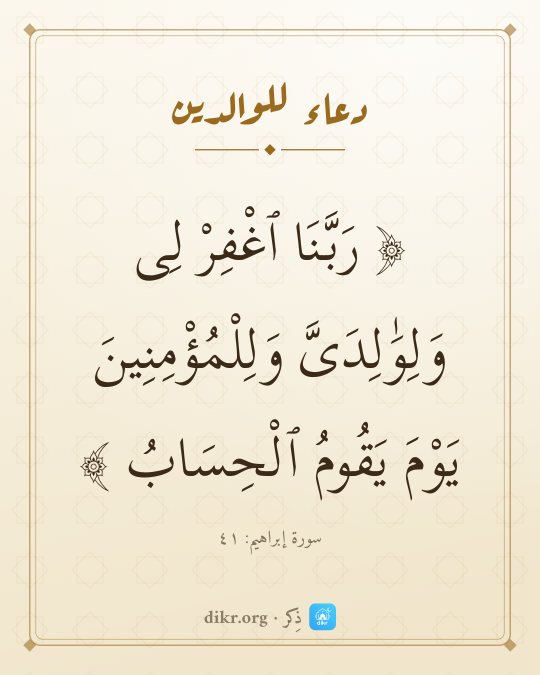 دعاء للوالدين
﴿ رَبَّنَا ٱغْفِرْ لِى
وَلِوَٰلِدَىَّ وَلِلْمُؤْمِنِينَ
يَوْمَ يَقُومُ ٱلْحِسَابُ ﴾
سورة إبراهيم: ٤١
dikr ذِكر · dikr.org